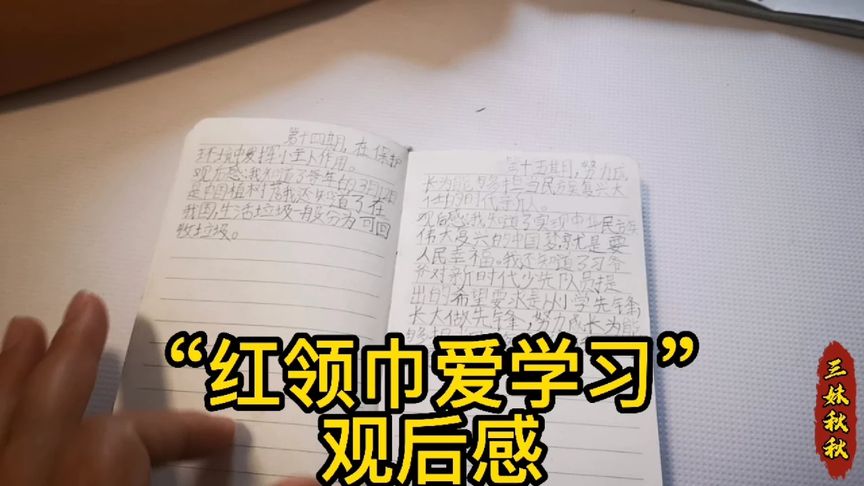 第十四期,在保护
环境中发挥小主人作用。
观后感:我知道了每年的3月12日
是中国植树节我还知道了在
我国,生活垃圾一般分为可回
收垃圾。
第十五期,努力成
长为能够担当民族复兴大
任的时代新人。
观后感:我知道了实现中华民族
伟大复兴的中国梦就是要
人民幸福。我还知道了习爷
爷对新时代少先队员提
出的希望要求是从小学先锋,
长大做先锋,努力成长为能
“红领巾爱学习”
观后感
三妹秋秋